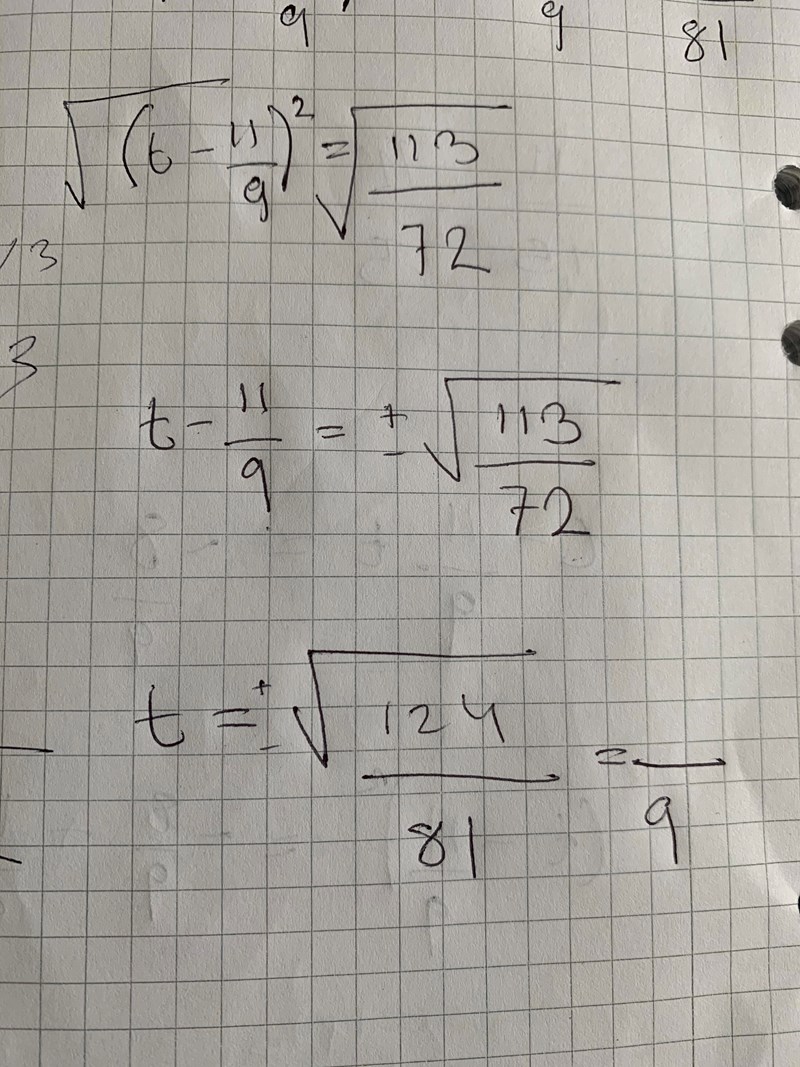 9 9 81
√(t - 11/9)² = √(113/72)
13
3
t - 11/9 = ± √(113/72)
t = ± √(124/81) = —/9